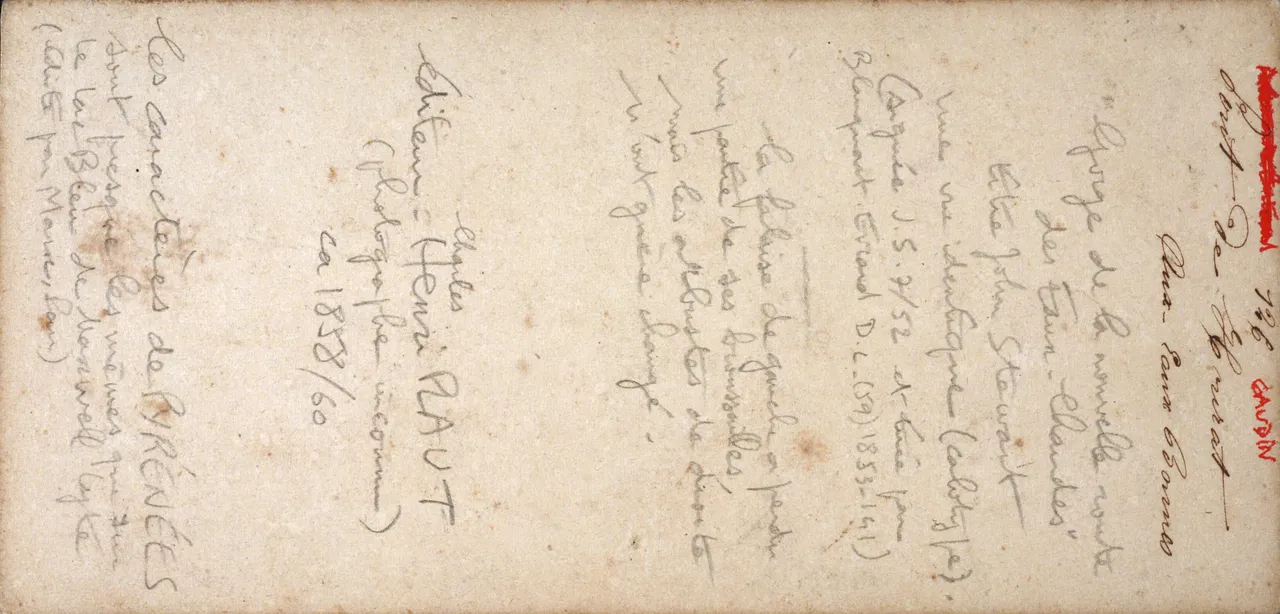 GAUDIN
Pont-De-Hourat
Aux-Eaux bonnes
"Gorge de la nouvelle route
des Eaux-Chaudes"
titre John Stewart
une vue identique (calotype)
(signée J.S. 7/52 et tirée par
Blanquart Evrard D.L. (59) 1853-141)
la falaise de gauche a perdu
une partie de ses broussailles
mais les arbustes de droite
n'ont guère changé.
Charles
Editeur = Henri PLAUT
(photographe inconnu)
ca 1858/60
Les caractères de PYRÉNÉES
sont presque les mêmes que sur
le lac Bleu de Maxwell Lyte
(édité par